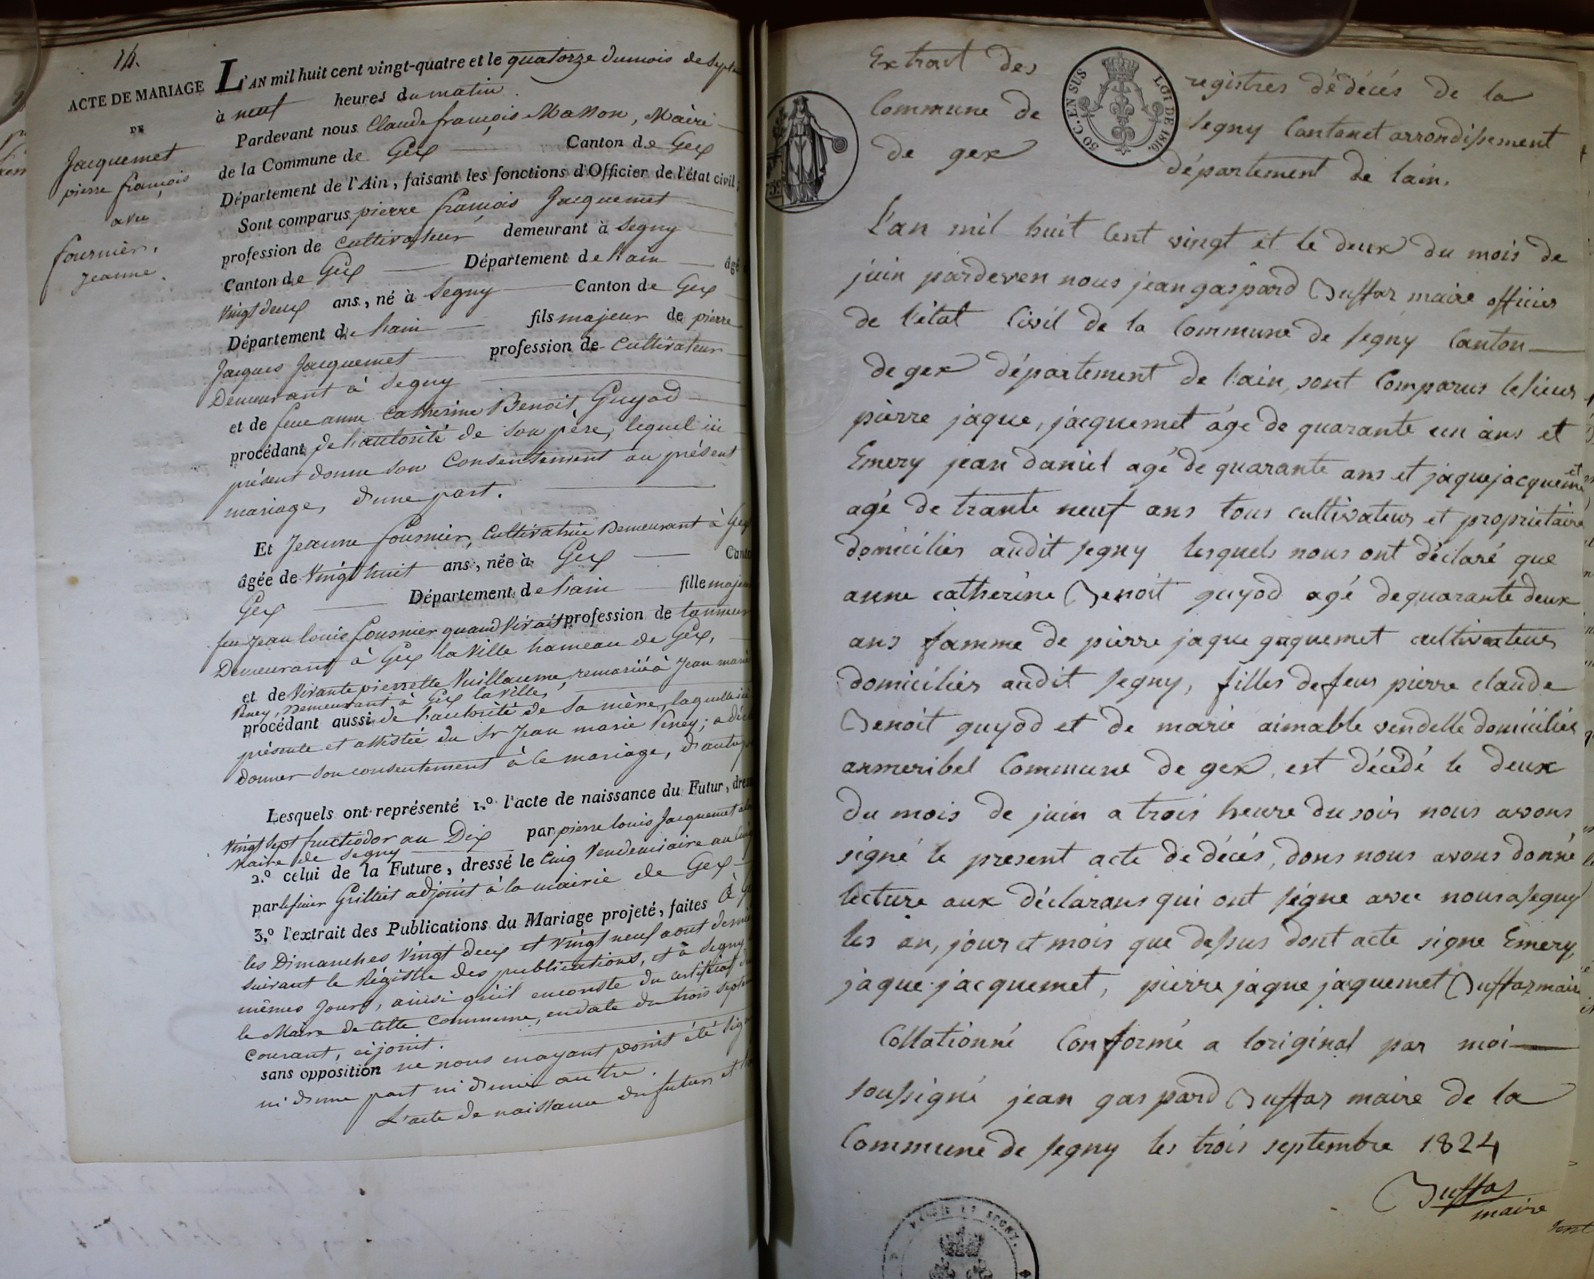 14.
ACTE DE MARIAGE
DE
Jacquemet
pierre françois
avec
fournier.
jeanne.
L'AN mil huit cent vingt-quatre et le quatorze du mois de Sept
à neuf heures du matin.
Pardevant nous Claude françois Masson, Maire
de la Commune de Gex Canton de Gex
Département de l'Ain, faisant les fonctions d'Officier de l'état civil,
Sont comparus pierre françois Jacquemet
profession de Cultivateur demeurant à Segny
Canton de Gex Département de l'ain âgé
Vingt deux ans, né à Segny Canton de Gex
Département de l'ain fils majeur de pierre
Jacques Jacquemet profession de Cultivateur
Demeurant à Segny
et de feue anne Catherine Benoit Guyod
procédant de l'autorité de Son père, lequel ici
présent donne son Consentement au présent
mariage, d'une part.
Et Jeanne fournier, Cultivatrice Demeurant à Gex
âgée de Vingt huit ans, née à Gex Canto
Gex Département de l'ain fille majeu
feu Jean Louis fournier quand Vivait profession de tanneur
Demeurant à Gex la Ville hameau de Gex,
et de Vivante pierrette Vuillaume, remariée à Jean marie
Piney, Demeurant à Gex la Ville,
procédant aussi de l'autorité de Sa mère, laquelle ici
présente et assistée du Sr Jean marie Piney; a décl
donner son consentement à ce mariage, d'autre p
Lesquels ont représenté 1.º l'acte de naissance du Futur, dres
Vingt Sept fructidor an Dix par pierre Louis Jacquemet alors
Maire de Segny
2.º celui de la Future, dressé le Cinq Vendemiaire an Cinq
par le sieur Grilliet adjoint à la mairie de Gex
3.º l'extrait des Publications du Mariage projeté, faites à G
les Dimanches Vingt deux et Vingt neuf aout dernier
suivant le Régistre des publications, et à Segny
mêmes Jours, ainsi qu'il enconste du certificat
le Maire de cette Commune, en date du trois Septem
courant, ci joint.
sans opposition ne nous en ayant point été Sign
ni d'une part ni d'une autre.
L'acte de naissance du futur et
Extrait des registres dédécés de la
Commune de Segny Canton et arrondissement
de gex département de lain.
50 C. EN SUS
LOI DE 1816.
L'an mil huit Cent vingt et le deux du mois de
juin pardeven nous jean gaspard Buffaz maire officier
de l'état Civil de la Commune de Segny Canton
de gex département de l'ain, sont Comparus lesieur
pierre jaque, jacquemet âgé de quarante un ans et
Emery jean Daniel agé de quarante ans et jaque jacquemet
agé de trante neuf ans tous cultivateur et proprietaire
domicilier audit Segny lesquels nous ont déclaré que
anne catherine Benoit guyod agé dequarante deux
ans famme de pierre jaque gaquemet cultivateur
domicilier audit Segny, filles defeus pierre claude
Benoit guyod et de marie aimable vendelle domicilier
armeribel Commune de gex, est décédé le deux
du mois de juin a trois heure du soir nous avons
signé le present acte de décés, dons nous avons donné
lecture aux déclarans qui ont signe avec nous a Segny
les an, jour et mois que dessus dont acte signe Emery,
jaque jacquemet, pierre jaque jaquemet Buffaz maire
Collationné Conformé a loriginal par moi
soussigné jean gaspard Buffaz maire de la
Commune de Segny les trois septembre 1824
Buffaz
maire